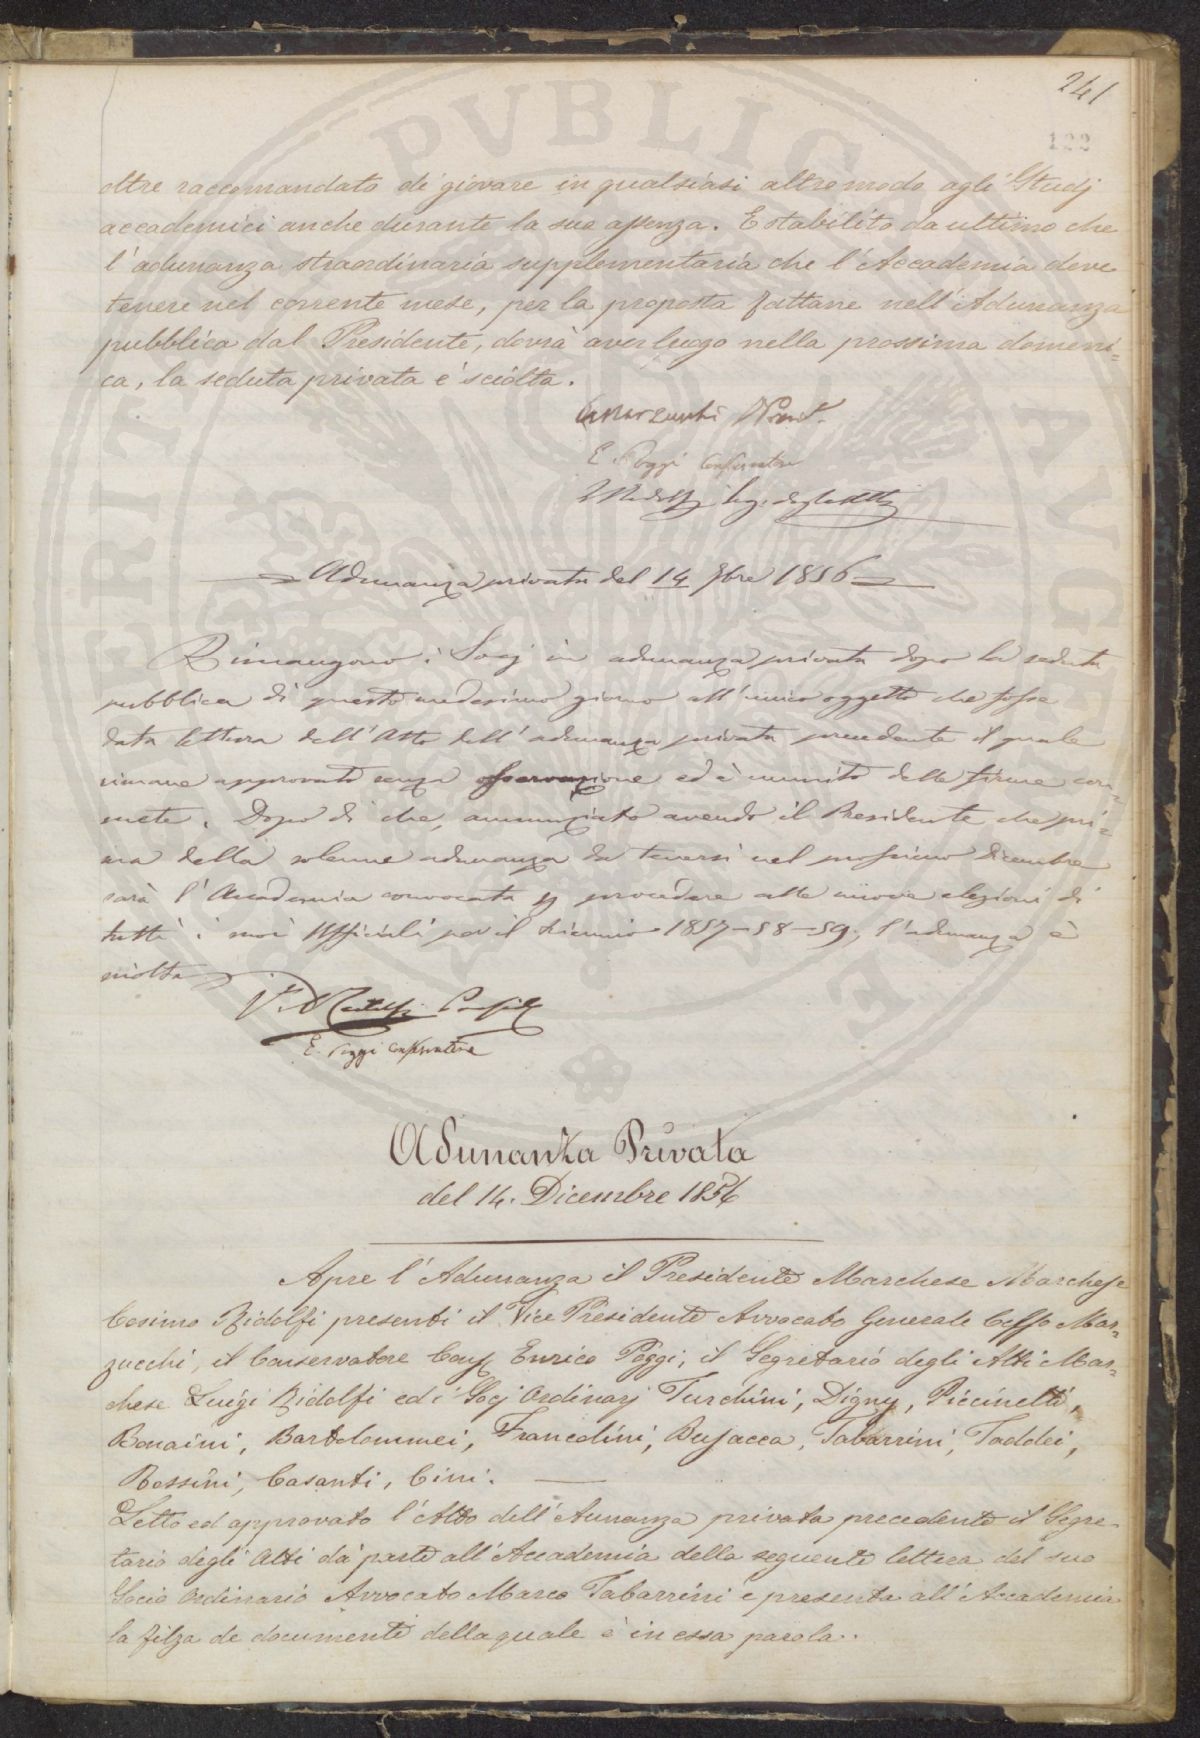 241
122
oltre raccomandato di giovare in qualsiasi altro modo agli Studj
accademici anche durante la sua assenza. E stabilito da ultimo che
l'adunanza straordinaria supplementaria che l'Accademia deve
tenere nel corrente mese, per la proposta fattane nell'Adunanza
pubblica dal Presidente, dovrà aver luogo nella prossima domeni=
ca, la seduta privata è sciolta.
C Marzucchi
E. Poggi Conservatore
L Ridolfi Seg. degli Atti
Adunanza privata del 14 9bre 1856
Rimangono i Socj in adunanza privata dopo la seduta
pubblica di questo medesimo giorno all'unico oggetto che fosse
data lettura dell'Atto dell'adunanza privata precedente il quale
rimane approvato senza osservazione ed è munito delle firme con=
suete. Dopo di che, annunziato avendo il Presidente che pri=
ma della solenne adunanza da tenersi nel prossimo dicembre
sarà l'Accademia convocata p procedere alle nuove elezioni di
tutti i suoi Uffiziali per il triennio 1857-58-59, l'adunanza è
sciolta
Ridolfi
E. Poggi Conservatore
Adunanza Privata
del 14. Dicembre 1856
Apre l'Adunanza il Presidente Marchese Marchese
Cosimo Ridolfi presenti il Vice Presidente Avvocato Generale Celso Mar=
zucchi, il Conservatore Enrico Poggi, il Segretario degli Atti Mar=
chese Luigi Ridolfi ed i Socj Ordinarj Turchini, Digny, Piccinetti,
Bonaini, Bartolommei, Francolini, Busacca, Tabarrini, Taddei,
Rossini, Casanti, Cini.
Letto ed approvato l'Atto dell'Aunanza privata precedente il Segre=
tario degli Atti dà parte all'Accademia della seguente lettera del suo
Socio Ordinario Avvocato Marco Tabarrini e presenta all'Accademia
la filza de documenti della quale è in essa parola..